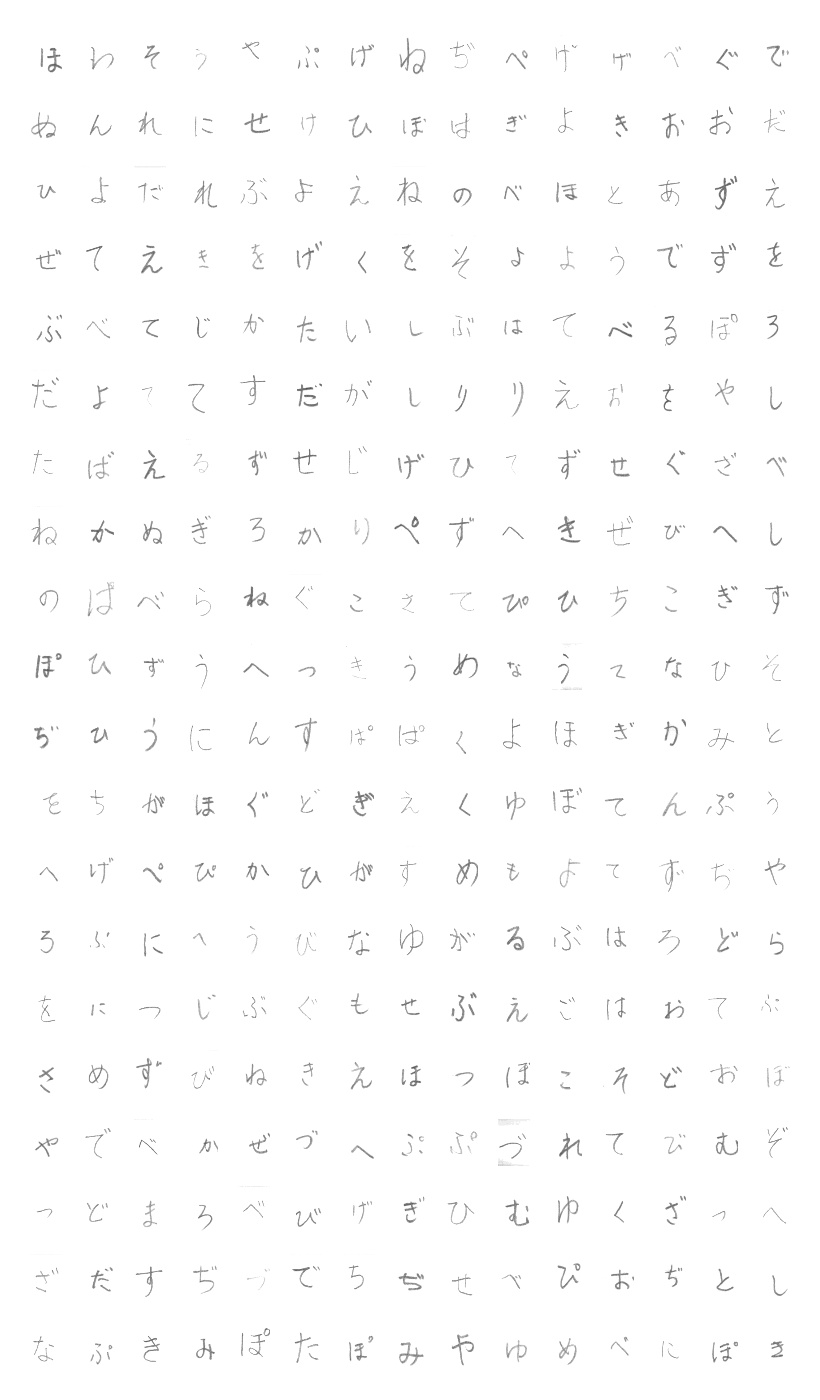 ほわそうやぷげねぢぺげげべぐで
ぬんれにせけひぼはぎよきおおだ
ひよだれぶよえねのべほとあずえ
ぜてえきをげくをそよようでずを
ぶべてじかたいしぶはてべるぽろ
だよててすだがしりりえおをやし
たばえるずせじげひてずせぐざべ
ねかぬぎろかりぺずへきぜびへし
のばべらねぐこさてぴひちこぎず
ぽひずうへっきうめなうてなひそ
ぢひうにんすぱぱくよほぎかみと
をちがほぐどぎえくゆぼてんぷう
へげぺぴかひがすめもよてずぢや
ろぶにへうびなゆがるぶはろどら
をにつじぶぐもせぶえごはおてぷ
さめずびねきえほつぼこそどおぼ
やでべかぜづへぷぷづれてびむぞ
っどまろべびげぎひむゆくざっへ
ざだすぢづでちぢせべぴおぢとし
なぷきみぽたぽみやゆめべにぽき